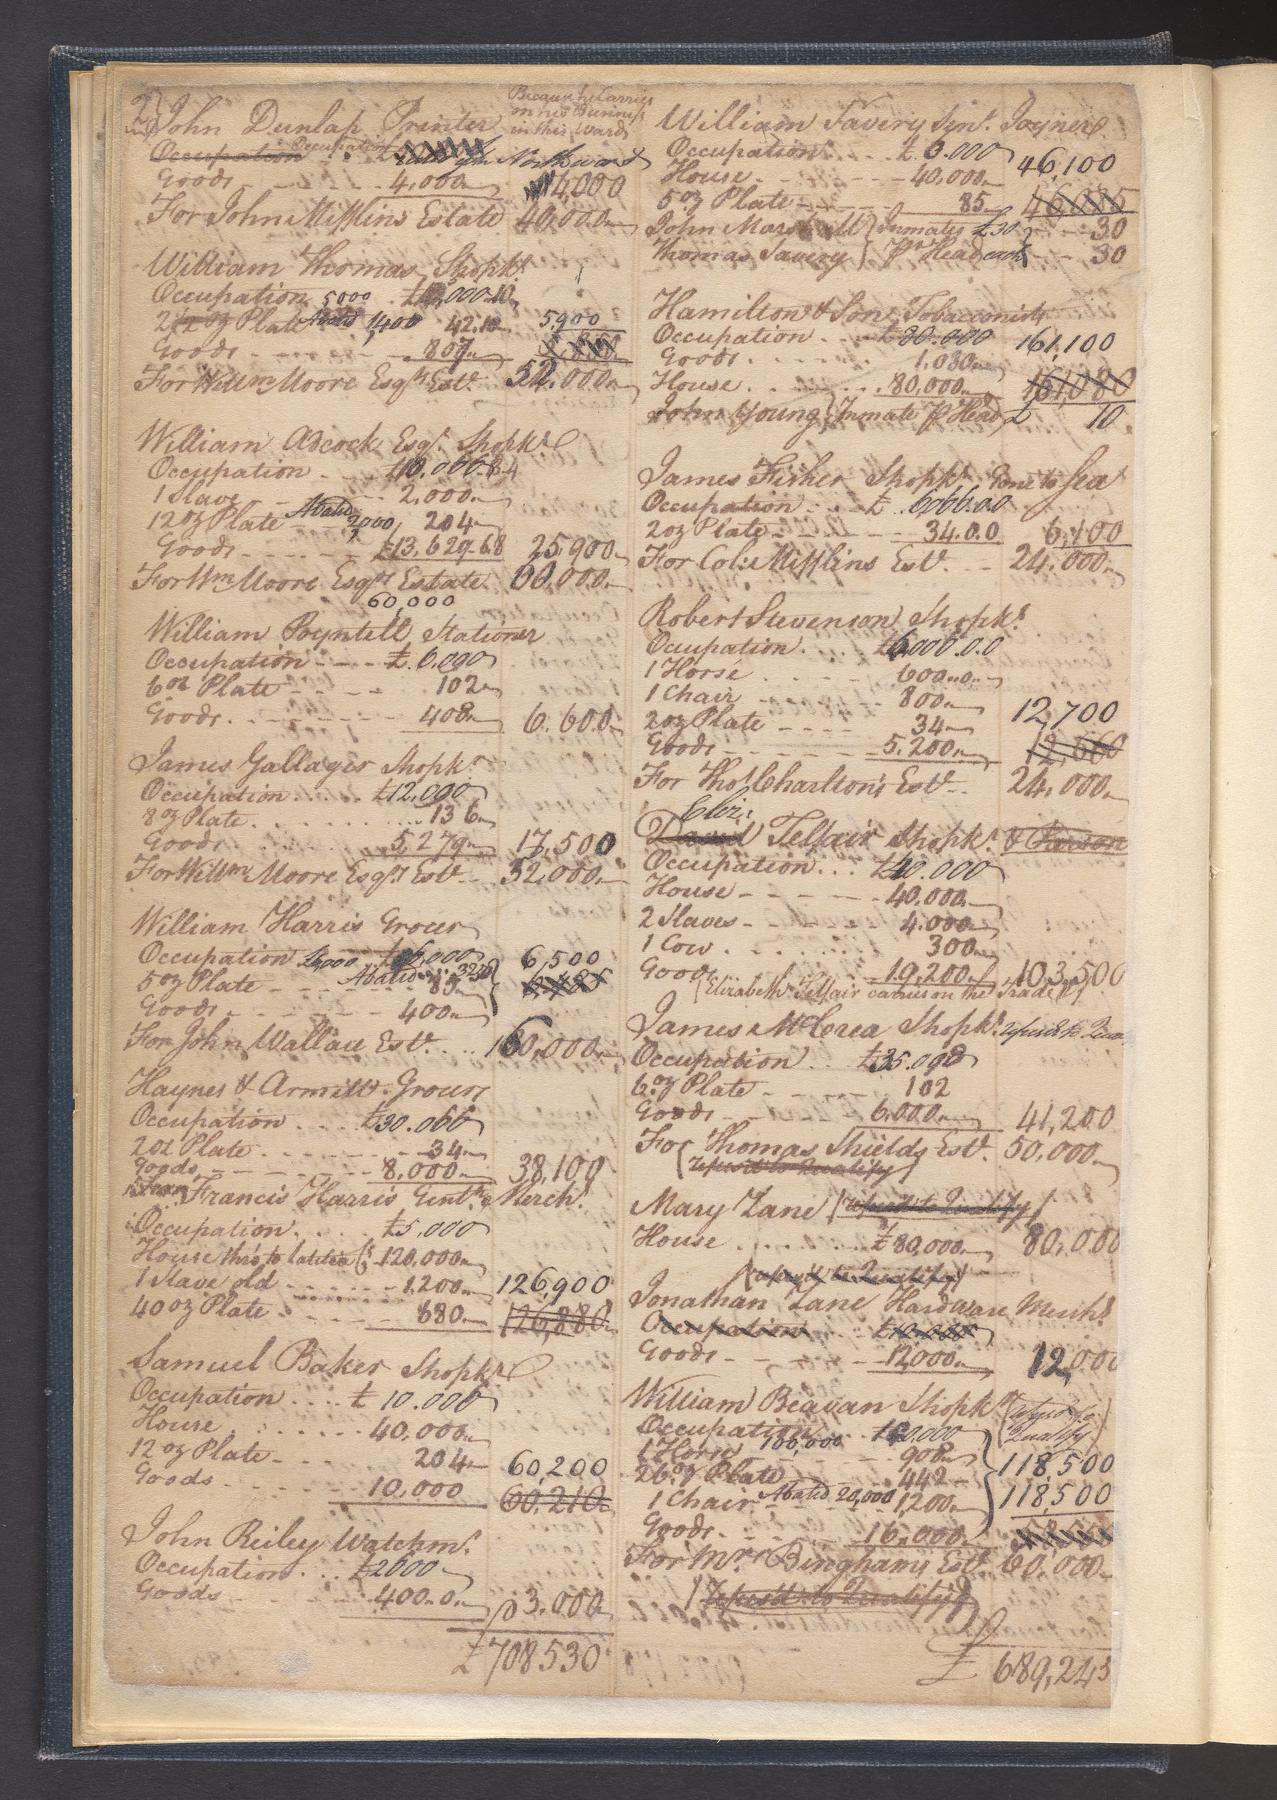 John Dunlap Printer
Because he Carries
on his Business
in this Ward
Occupation Occupation
Goods 4,000 4,000
For John Mifflins Estate 40,000
William Thomas Shopkr
Occupation 5000
2 1/2 oz Plate Abated 1,400 42.10 5,900
Goods 807
For Willm Moore Esqrs Estt. 52.000
William Adcock Esqr. Shopkr
Occupation £10.066.8.4
1 Slave 2,000
12 oz Plate Abated 2000 204
Goods £13,629.6.8 25,900
For Wm Moore Esqrs Estate 60,000
60,000
William Poyntell Stationer
Occupation £6,090
6 oz Plate 102
Goods 408 6.600
James Gallager Shopkr
Occupation £12,000
8 oz Plate 136
Goods 5,279 17,500
For Willm Moore Esqrs Estt 32,000
William Harris Grocer
Occupation £6,000 6,500
5 oz Plate Abated 85 6,485
Goods 400
For John Wallace Estt. 160,000
Haynes & Armitt Grocers
Occupation £30.066
2 oz Plate 34
Goods 8,000 38,100
Francis Harris Gentn. Mercht
Occupation £5,000
House thro to Latitia St 120,000
1 Slave old 1,200 126,900
40 oz Plate 680 126,880
Samuel Baker Shopkr
Occupation £10.000
House 40,000
12 oz Plate 204 60,200
Goods 10,000 60,210
John Reiley Watchmr
Occupation £2600
Goods 400.0 3,000
£708530
William Savery Senr. Joyner
Occupation £6.000 46,100
House 40,000
5 oz Plate 85 46,085
John Marshall Inmates £30 30
Thomas Savery Pr Head each 30
Hamilton & Son Tobacconists
Occupation £80.000 161,100
Goods 1,030
House 80,000 161,080
John Young Inmate Pr Head £ 10
James Fisher Shopkr Gone to Sea
Occupation £6066.0.0
2 oz Plate 34.0.0 6,100
For Col: Mifflins Estt. 24,000
Robert Stevenson Shopkr
Occupation £6,000.0.0
1 Horse 600.0
1 Chair 800
2 oz Plate 34 12,700
Goods 5,200
For Thos Charlton's Estt 24,000
Eliz:
David Telfair Shopkr. & Parson
Occupation £40.000
House 40.000
2 Slaves 4.000
1 Cow 300
Goods 19,200 103,500
(Elizabeth Telfair carries on the Trade)
James McCrea Shopkr. refused to Qua
Occupation £35.098
6 oz Plate 102
Goods 6.000 41,200
For Thomas Shields Estt. 50,000
(refus'd to Qualify)
Mary Lane (refused to Qualify)
House £80,000 80,000
(refus'd to Qualify)
Jonathan Zane Hardware Mercht
Occupation £10.000
Goods 12000 12,000
William Beavan Shopkr (refused to
Qualify)
Occupation
1 Horse 100,000 900 118,500
26 oz Plate 442
1 Chair Abated 20,000 1,200 118,500
Goods 16,000
For Mrs Binghams Estt. 60,000
(refus'd to Qualify)
£ 689,243